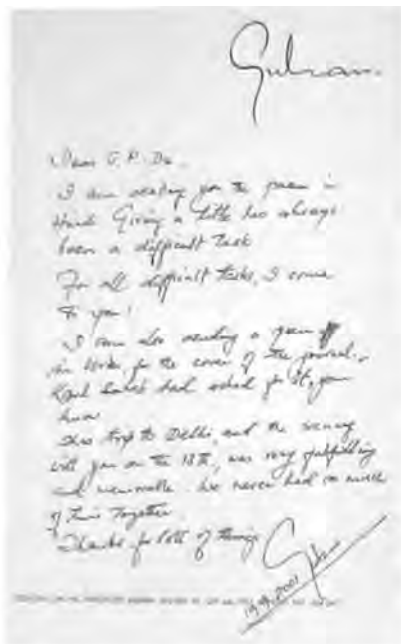 Gulzar.
Dear J. P. Da.
I am sending you the poem in
Hindi. Giving a title has always
been a difficult task
For all difficult tasks, I come
to you!
I am also sending a poem
in Urdu, for the cover of the journal.
had asked for it, you
know
This trip to Delhi, and the evening
with you on the 18th, was very fulfilling
and memorable. We never had so much
of time together
Thanks for lott of things
19.9.2001